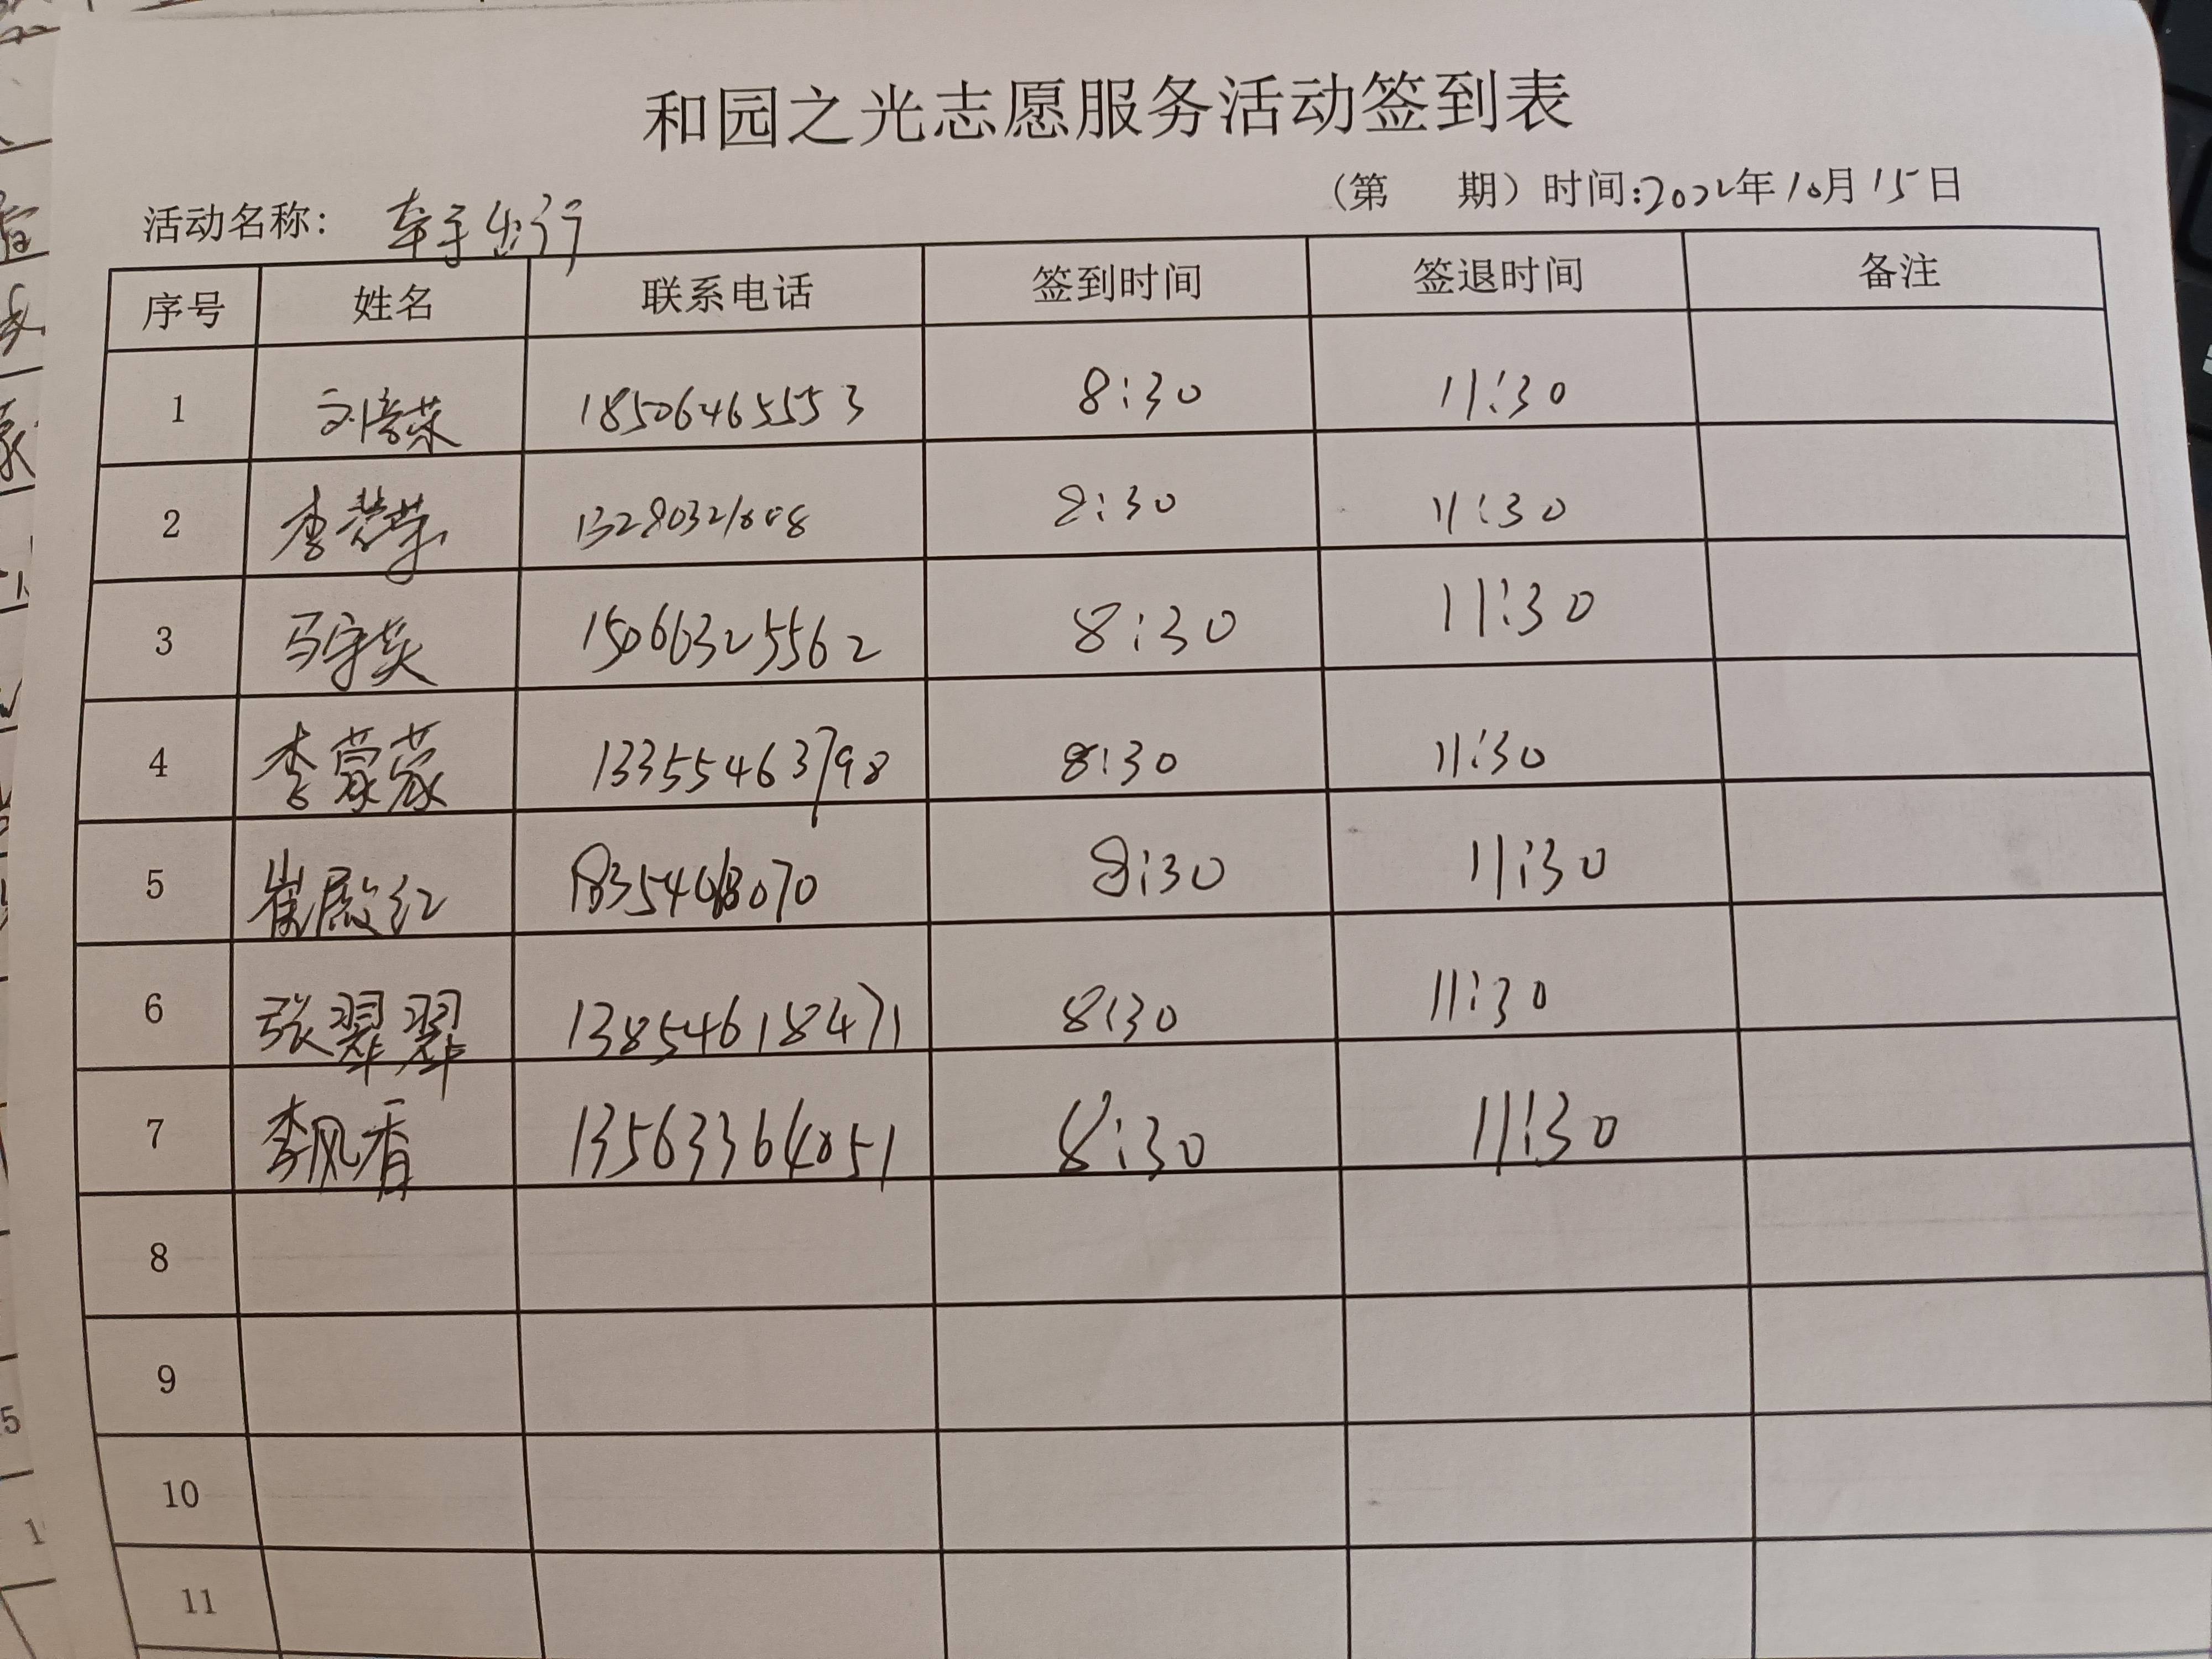 和园之光志愿服务活动签到表
活动名称： 牵手出行 （第 期）时间:2022年10月15日
序号 姓名 联系电话 签到时间 签退时间 备注
1 18506465553 8:30 11:30
2 13280321608 8:30 11:30
3 15066325562 8:30 11:30
4 李蒙蒙 13355463798 8:30 11:30
5 崔殿红 8:30 11:30
6 张翠翠 13854618471 8:30 11:30
7 李风香 13563364051 8:30 11:30
8
9
10
11